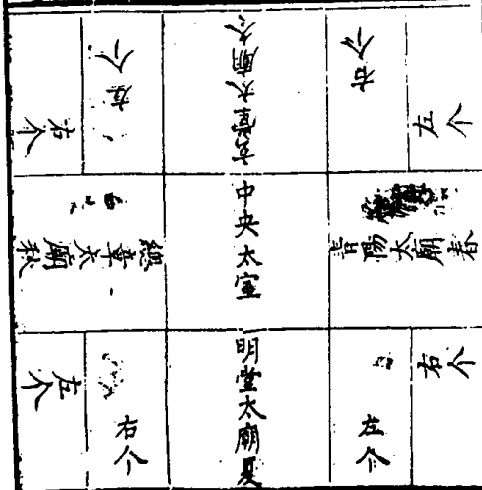 左个
右个
玄堂太廟冬
右个
左个
總章太廟秋
中央太室
青陽太廟春
左个
右个
明堂太廟夏
左个
右个